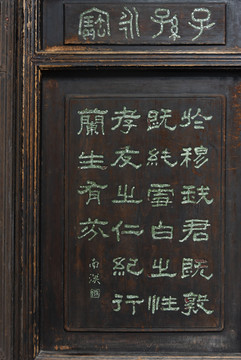 子孫永寶
於穆我君既敦
既純雪白之性
孝友之仁紀行
蘭生有芬